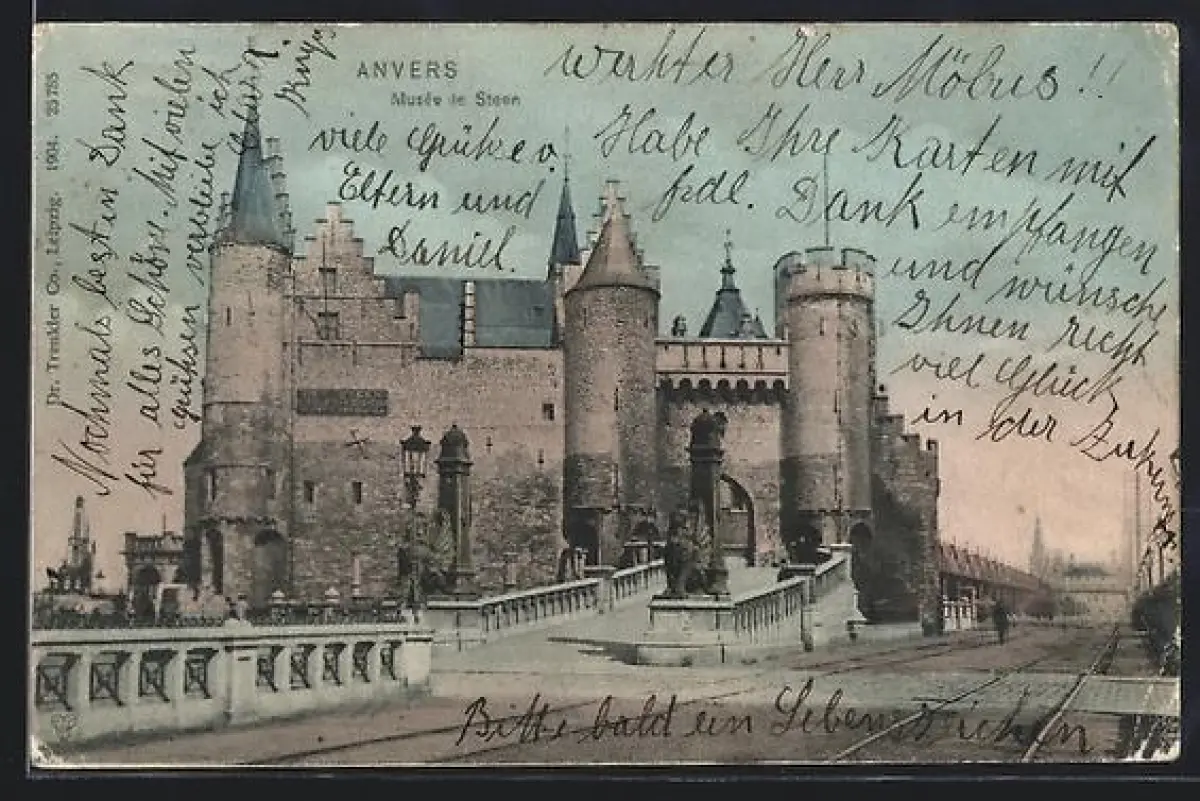 ANVERS
Musée le Steen
werther Herr Möbus!!
Habe Ihre Karten mit
frdl. Dank empfangen
und wünsche
Ihnen recht
viel Glück
in der Zukunft
viele Grüße v.
Eltern und
Daniel.
Nochmals besten Dank
für alles Gehörn. Mit vielen
grüßen verbleibe ich
Bitte bald ein Lebenszeichen
Dr. Trenkler Co., Leipzig. 1904. 23785